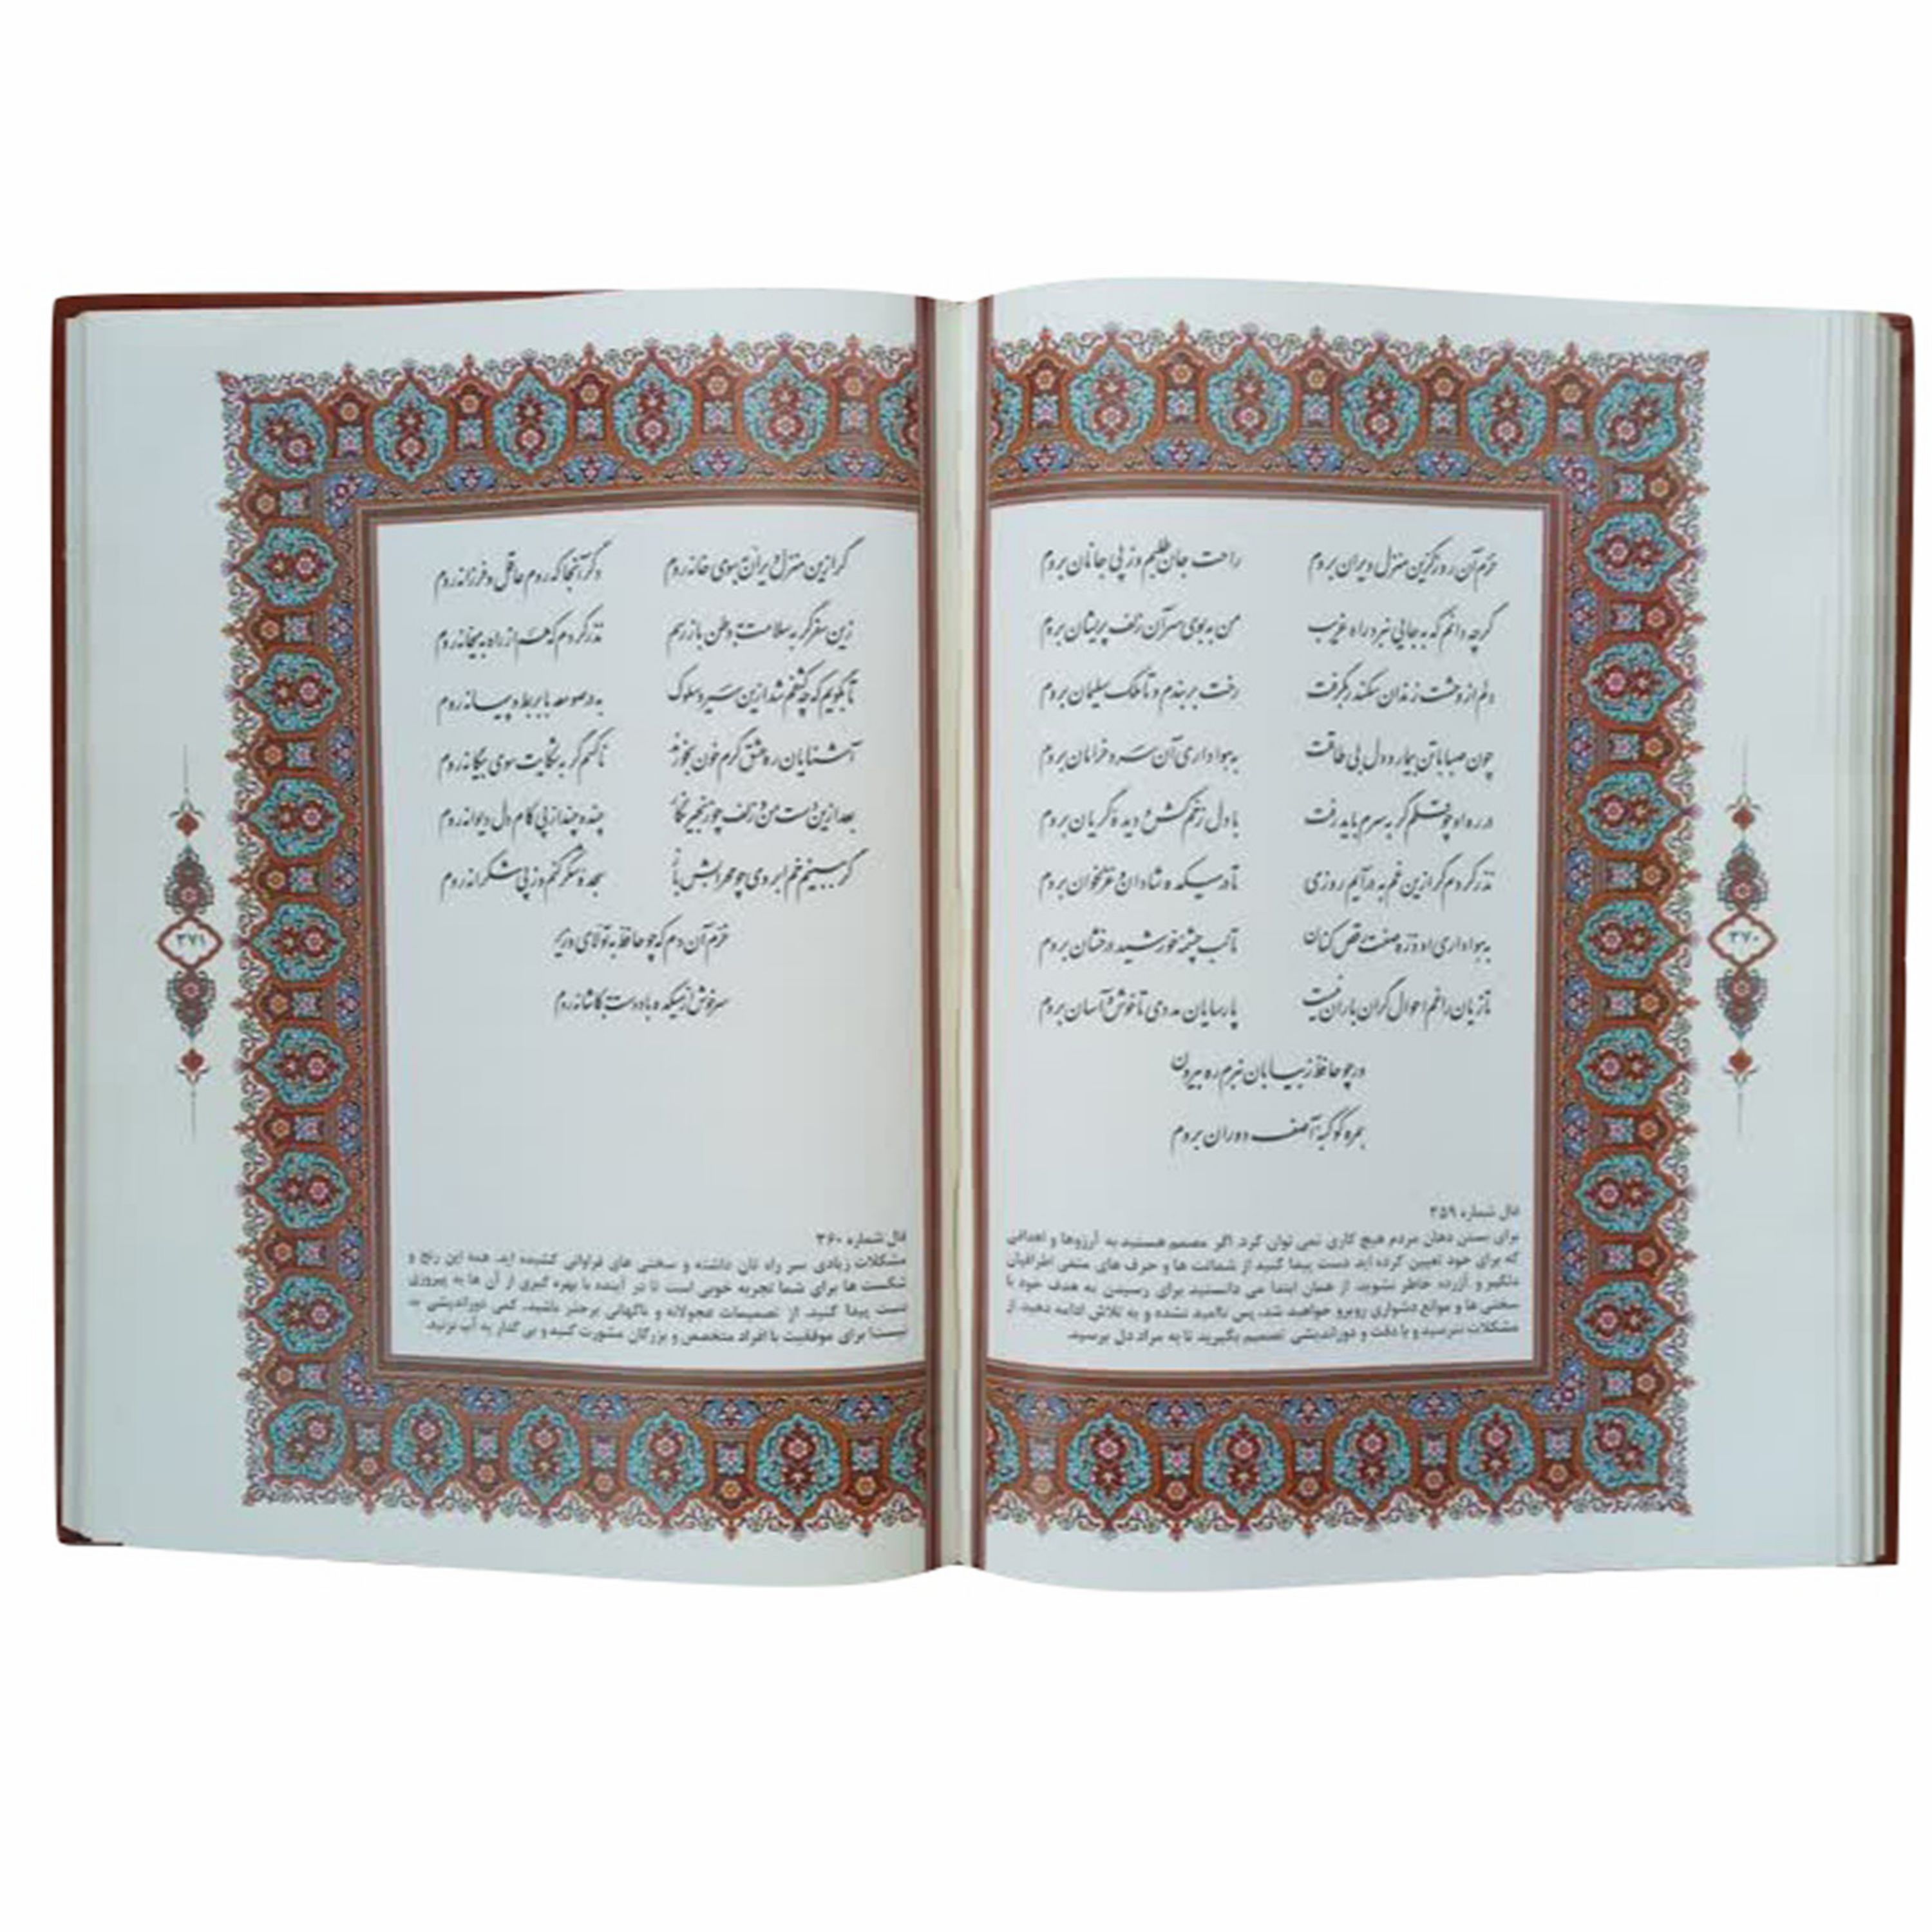 خرم آن روز کزین منزل ویران بروم
راحت جان طلبم وز پی جانان بروم
گرچه دانم که به جایی نبرد راه غریب
من به بوی سر آن زلف پریشان بروم
دلم از وحشت زندان سکندر بگرفت
رخت بربندم و تا ملک سلیمان بروم
چون صبا با تن بیمار و دل بی طاقت
به هواداری آن سرو خرامان بروم
در ره او چو قلم گر به سرم باید رفت
با دل زخم کش و دیده گریان بروم
نذر کردم گر ازین غم به درآیم روزی
تا در میکده شادان و غزلخوان بروم
به هواداری او ذره صفت رقص کنان
تا لب چشمه خورشید درخشان بروم
تازیان را غم احوال گران باران نیست
پارسایان مددی تا خوش و آسان بروم
ور چو حافظ ز بیابان نبرم ره بیرون
همره کوکبه آصف دوران بروم
فال شماره ۳۵۹
برای بستن دهان مردم هیچ کاری نمی توان کرد. اگر مصمم هستید به آرزوها و اهدافی
که برای خود تعیین کرده اید دست پیدا کنید از شماتت ها و حرف های منفی اطرافیان
دلگیر و آزرده خاطر نشوید. از همان ابتدا می دانستید برای رسیدن به هدف خود با
سختی ها و موانع دشواری روبرو خواهید شد، پس ناامید نشده و به تلاش ادامه دهید. از
مشکلات نترسید و با دقت و دوراندیشی تصمیم بگیرید تا به مراد دل برسید.
۳۷۰
گر ازین منزل ویران به سوی خانه روم
دگر آنجا که روم عاقل و فرزانه روم
زین سفر گر به سلامت به وطن باز رسم
نذر کردم که هم از راه به میخانه روم
تا بگویم که چه کشفم شد ازین سیر و سلوک
به در صومعه با بربط و پیمانه روم
آشنایان ره عشق گرم خون بخورند
ناکسم گر به شکایت سوی بیگانه روم
بعد ازین دست من و زلف چو زنجیر نگار
چند و چند از پی کام دل دیوانه روم
گر ببینم خم ابروی چو محرابش باز
سجده شکر کنم وز پی شکرانه روم
خرم آن دم که چو حافظ به تولای وزیر
سرخوش از میکده با دوست به کاشانه روم
فال شماره ۳۶۰
مشکلات زیادی سر راه تان داشته و سختی های فراوانی کشیده اید. همه این رنج و
شکست ها برای شما تجربه خوبی است تا در آینده با بهره گیری از آن ها به پیروزی
دست پیدا کنید. از تصمیمات عجولانه و ناگهانی برحذر باشید. کمی دوراندیشی
برای موفقیت با افراد متخصص و بزرگان مشورت کنید و بی گدار به آب نزنید.
۳۷۱